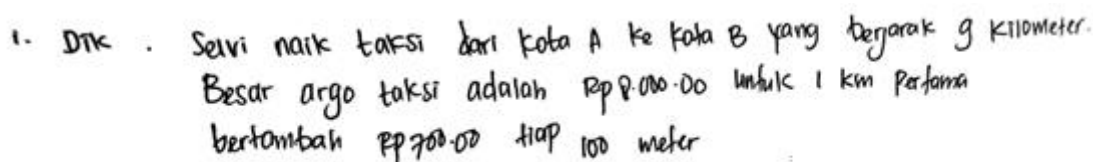 1. Dik . Selvi naik taksi dari kota A ke kota B yang berjarak 9 kilometer.
Besar argo taksi adalah Rp 8.000.00 untuk 1 km pertama
bertambah Rp 700.00 tiap 100 meter